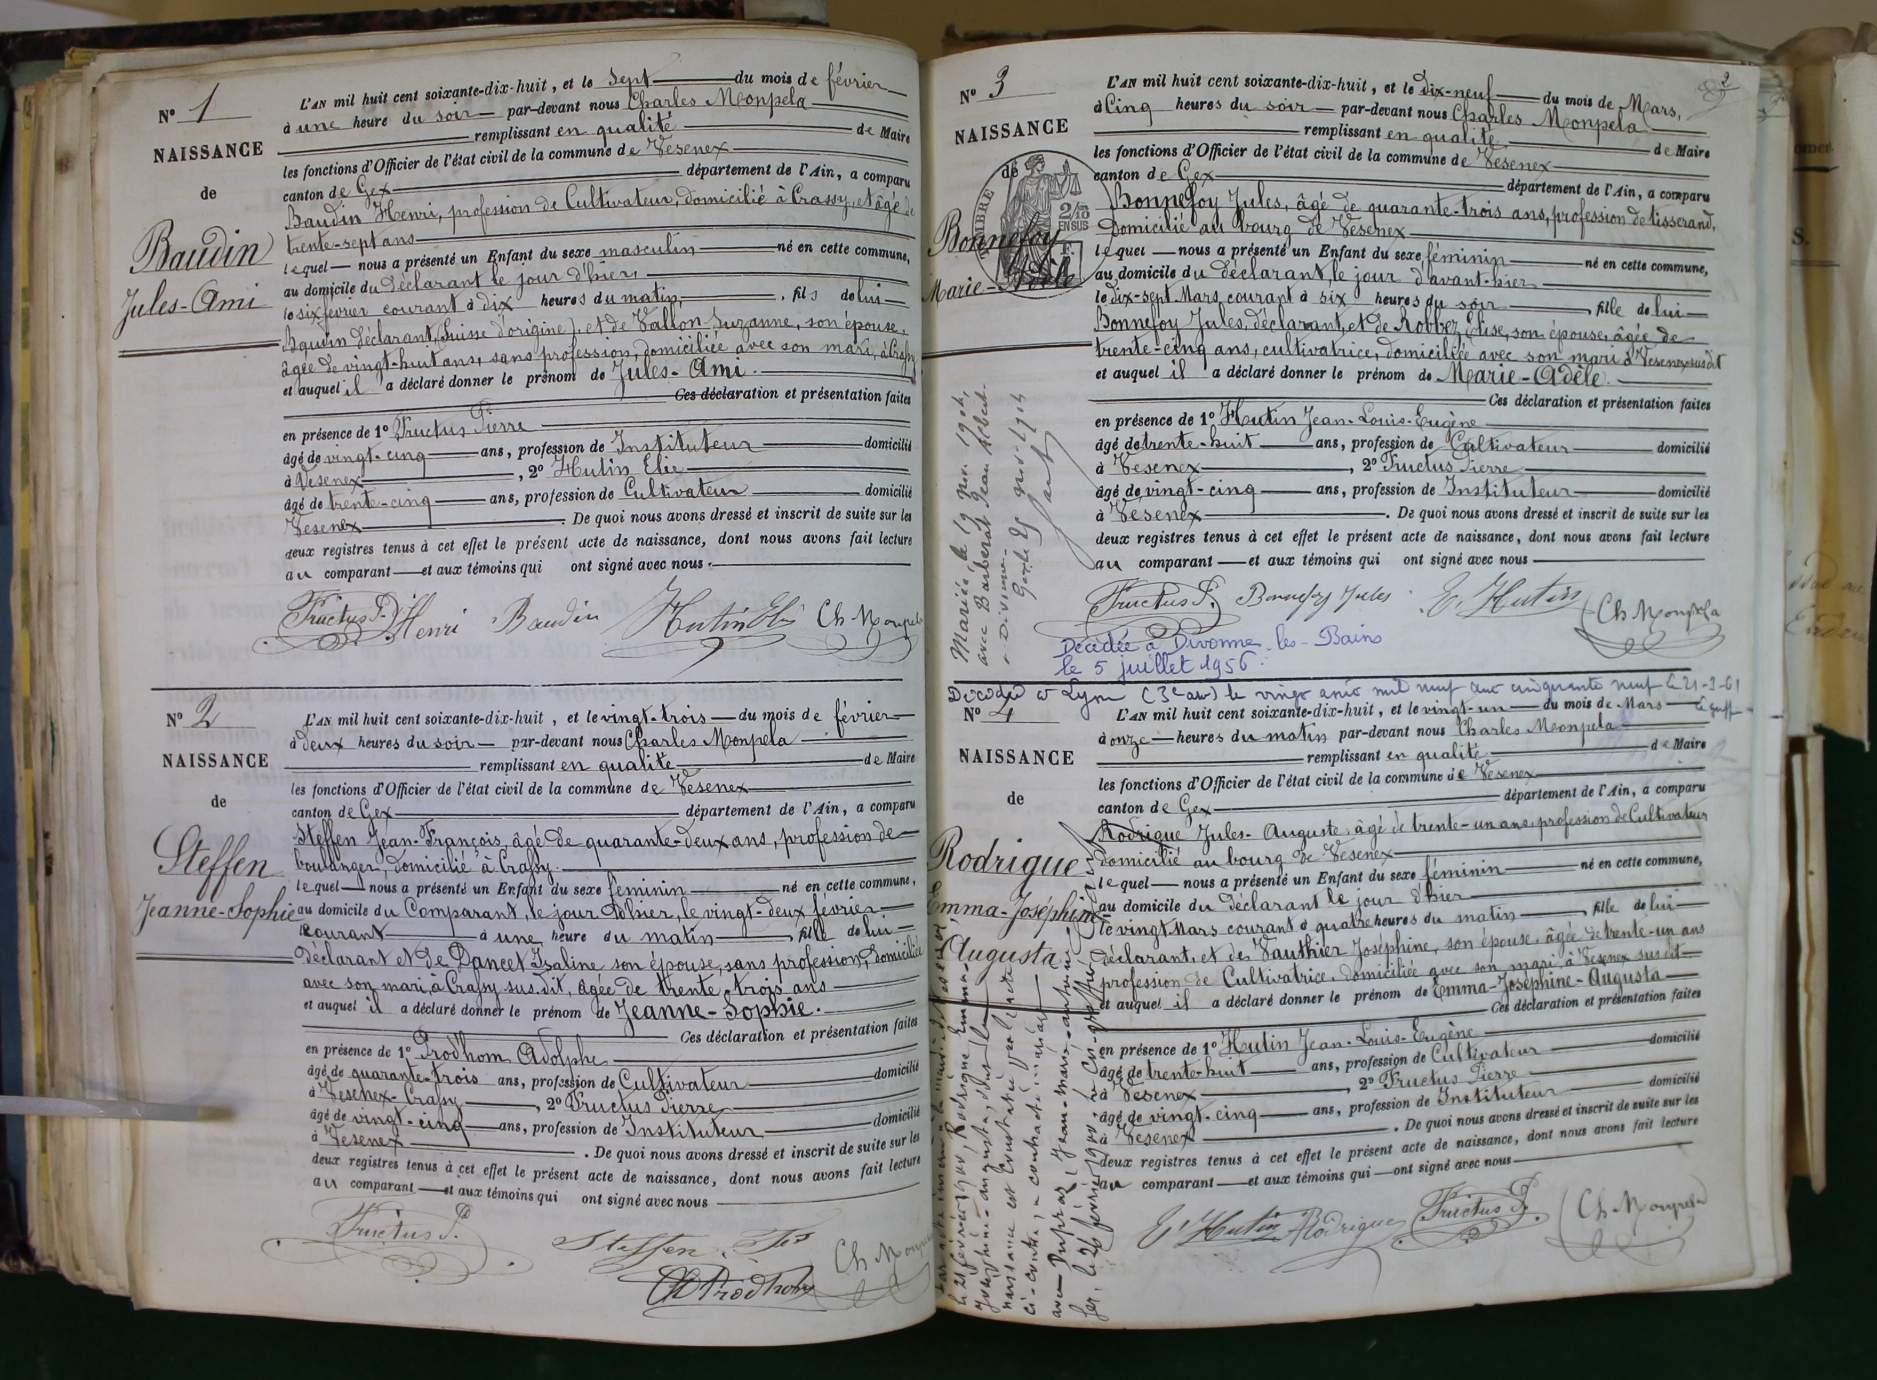 N° 1
NAISSANCE
de
Baudin
Jules-Ami
L'AN mil huit cent soixante-dix-huit, et le sept du mois de février
à une heure du soir par-devant nous Charles Monpela
remplissant en qualité de Maire
les fonctions d'Officier de l'état civil de la commune de Vesenex
canton de Gex département de l'Ain, a comparu
Baudin Henri, profession de Cultivateur, domicilié à Crassy, et âgé de
trente-sept ans
lequel nous a présenté un Enfant du sexe masculin né en cette commune,
au domicile du déclarant le jour d'hier,
le six février courant à dix heures du matin, fils de lui
Baudin déclarant, (Suisse d'origine), et de Vallon Suzanne, son épouse,
âgée de vingt-huit ans, sans profession, domiciliée avec son mari, à Crassy
et auquel il a déclaré donner le prénom de Jules-Ami.
Ces déclaration et présentation faites
en présence de 1° Fructus Pierre
âgé de vingt-cinq ans, profession de Instituteur domicilié
à Vesenex, 2° Hutin Elie
âgé de trente-cinq ans, profession de Cultivateur domicilié
Vesenex. De quoi nous avons dressé et inscrit de suite sur les
deux registres tenus à cet effet le présent acte de naissance, dont nous avons fait lecture
au comparant et aux témoins qui ont signé avec nous.
Fructus P. Henri Baudin Hutin Elie Ch Monpela
N° 2
NAISSANCE
de
Steffen
Jeanne-Sophie
L'AN mil huit cent soixante-dix-huit, et le vingt-trois du mois de février
à deux heures du soir par-devant nous Charles Monpela
remplissant en qualité de Maire
les fonctions d'Officier de l'état civil de la commune de Vesenex
canton de Gex département de l'Ain, a comparu
Steffen Jean-François, âgé de quarante-deux ans, profession de
boulanger, domicilié à Crassy.
lequel nous a présenté un Enfant du sexe féminin né en cette commune,
au domicile du Comparant, le jour d'hier, le vingt-deux février
courant à une heure du matin, fille de lui
déclarant et de Dancet Isaline son épouse, sans profession, domiciliée
avec son mari, à Crassy sus-dit, âgée de trente-trois ans
et auquel il a déclaré donner le prénom de Jeanne-Sophie.
Ces déclaration et présentation faites
en présence de 1° Prodhom Adolphe
âgé de quarante-trois ans, profession de Cultivateur domicilié
à Vesenex-Crassy, 2° Fructus Pierre
âgé de vingt-cinq ans, profession de Instituteur domicilié
à Vesenex. De quoi nous avons dressé et inscrit de suite sur les
deux registres tenus à cet effet le présent acte de naissance, dont nous avons fait lecture
au comparant et aux témoins qui ont signé avec nous
Fructus P. Steffen Ad Prodhom Ch Monpela
2
N° 3
NAISSANCE
de
Bonnefoy
Marie-Adèle
TIMBRE
2/10
EN SUS
L'AN mil huit cent soixante-dix-huit, et le dix-neuf du mois de Mars,
à Cinq heures du soir par-devant nous Charles Monpela
remplissant en qualité de Maire
les fonctions d'Officier de l'état civil de la commune de Vesenex
canton de Gex département de l'Ain, a comparu
Bonnefoy Jules, âgé de quarante-trois ans, profession de tisserand,
Domicilié au bourg de Vesenex
lequel nous a présenté un Enfant du sexe féminin né en cette commune,
au domicile du déclarant, le jour d'avant-hier
le dix-sept Mars, courant à six heures du soir, fille de lui
Bonnefoy Jules, déclarant, et de Robbez Elise, son épouse, âgée de
trente-cinq ans, cultivatrice, domiciliée avec son mari à Vesenex susdit
et auquel il a déclaré donner le prénom de Marie-Adèle.
Ces déclaration et présentation faites
en présence de 1° Hutin Jean-Louis-Eugène
âgé de trente-huit ans, profession de Cultivateur domicilié
à Vesenex, 2° Fructus Pierre
âgé de vingt-cinq ans, profession de Instituteur domicilié
à Vésenex. De quoi nous avons dressé et inscrit de suite sur les
deux registres tenus à cet effet le présent acte de naissance, dont nous avons fait lecture
au comparant et aux témoins qui ont signé avec nous
Fructus P. Bonnefoy Jules E. Hutin Ch Monpela
Mariée le 19
avec Barberat Jean
à Divonne.
Décédée à Divonne-les-Bains
le 5 juillet 1956.
Décédée à Lyon (3e arr) le vingt mil neuf cent cinquante neuf
N° 4
NAISSANCE
de
Rodrigue
Emma-Joséphine-
Augusta
L'AN mil huit cent soixante-dix-huit, et le vingt-un du mois de Mars
à onze heures du matin par-devant nous Charles Monpela
remplissant en qualité de Maire
les fonctions d'Officier de l'état civil de la commune de Vesenex
canton de Gex département de l'Ain, a comparu
Rodrigue Jules-Auguste, âgé de trente-un ans, profession de Cultivateur
domicilié au bourg de Vesenex
lequel nous a présenté un Enfant du sexe féminin né en cette commune,
au domicile du déclarant le jour d'hier
le vingt Mars courant à quatre heures du matin, fille de lui
déclarant, et de Vauthier Joséphine, son épouse, âgée de trente-un ans
profession de Cultivatrice, domiciliée avec son mari, à Vesenex sus dit
et auquel il a déclaré donner le prénom de Emma-Joséphine-Augusta
Ces déclaration et présentation faites
en présence de 1° Hutin Jean-Louis-Eugène domicilié
âgé de trente-huit ans, profession de Cultivateur
à Vesenex, 2° Fructus Pierre domicilié
âgé de vingt-cinq ans, profession de Instituteur
à Vesenex. De quoi nous avons dressé et inscrit de suite sur les
deux registres tenus à cet effet le présent acte de naissance, dont nous avons fait lecture
au comparant et aux témoins qui ont signé avec nous
E. Hutin Rodrigue Fructus P. Ch Monpela
le 21 février 1900, Rodrigue Emma-
Joséphine-Augusta, dont la
naissance est constatée par l'acte
ci-contre, a contracté mariage
avec Jean-Marie-Antoine
Gex, le 26 février 1900.